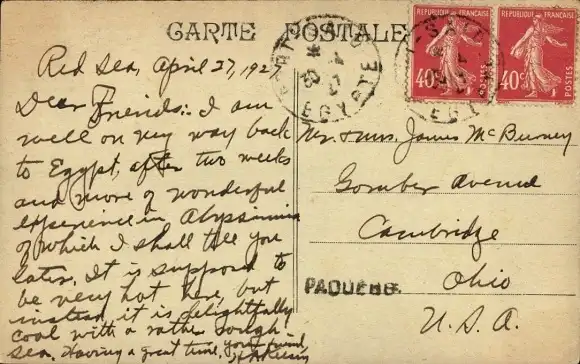 CARTE POSTALE
Red Sea, April 27, 1927
Dear Friends: I am
well on my way back
to Egypt, after two weeks
and more of wonderful
experience in Abyssinia
of which I shall tell you
later. It is supposed to
be very hot here, but
instead, it is delightfully
cool with a rather rough
sea. Having a great time. Your friend,
Mr. & Mrs. James McBurney
Gomber Avenue
Cambridge
Ohio
U.S.A.
PAQUEBOT
REPUBLIQUE FRANÇAISE
40c
POSTES
REPUBLIQUE FRANÇAISE
40c
POSTES
EGYPTE